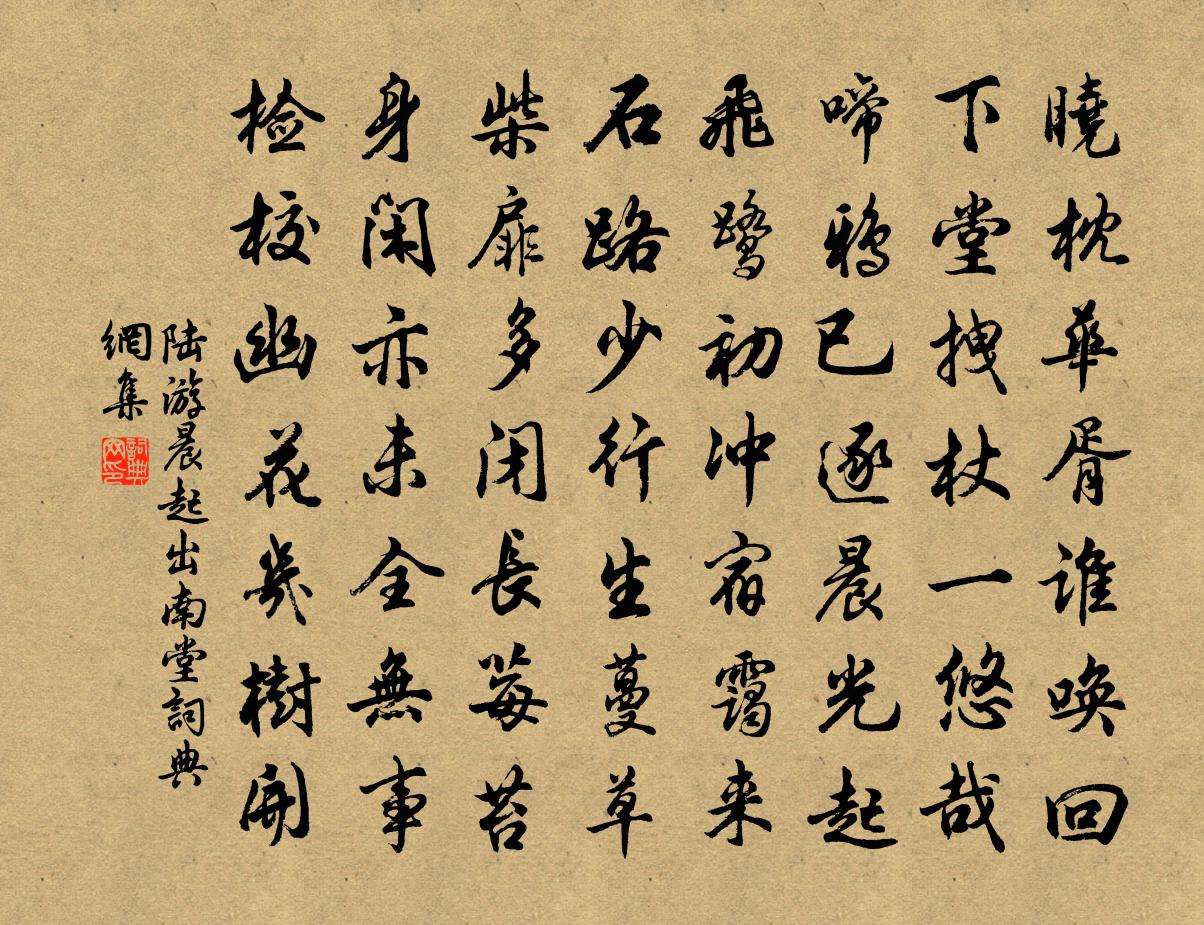 曉枕華胥谁唤回
下堂拽杖一悠哉
啼鴉已逐晨光起
飛鷺初冲宿靄来
石路少行生蔓草
柴扉多闭長莓苔
身闲亦未全無事
检校幽花幾樹開
陆游晨起出南堂詞典
網集
詞典
网印